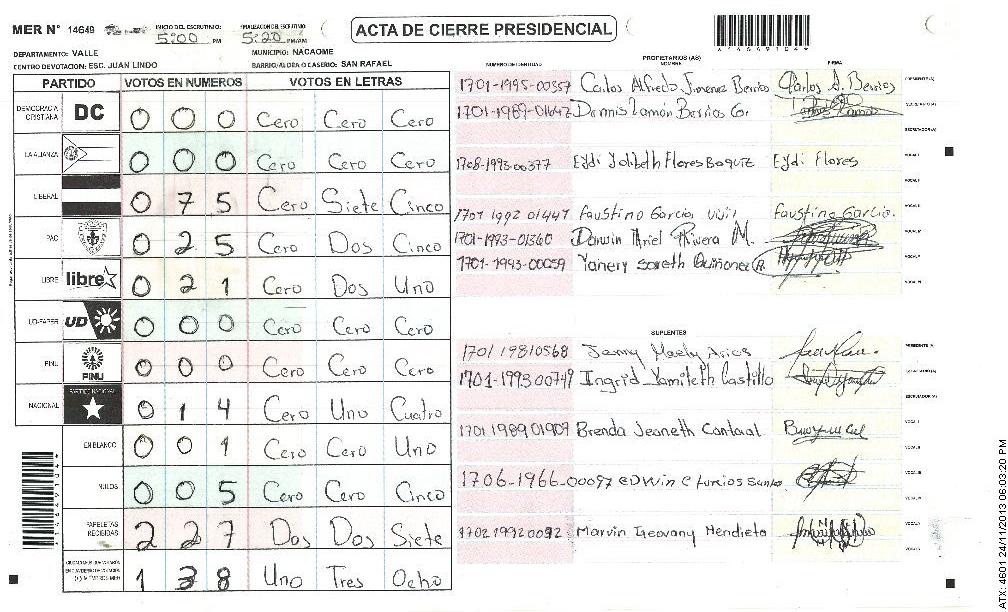 MER N° 14649
INICIO DEL ESCRUTINIO: 5:00 PM
FINALIZACION DEL ESCRUTINIO: 5:20 PM/AM
ACTA DE CIERRE PRESIDENCIAL
DEPARTAMENTO: VALLE
MUNICIPIO: NACAOME
CENTRO DE VOTACION: ESC. JUAN LINDO
BARRIO/ALDEA O CASERIO: SAN RAFAEL
PARTIDO VOTOS EN NUMEROS VOTOS EN LETRAS
DEMOCRACIA CRISTIANA DC 0 0 0 Cero Cero Cero
LA ALIANZA 0 0 0 Cero Cero Cero
LIBERAL 0 7 5 Cero Siete Cinco
PAC 0 2 5 Cero Dos Cinco
LIBRE libre 0 2 1 Cero Dos Uno
UD-FAPER UD 0 0 0 Cero Cero Cero
PINU PINU 0 0 0 Cero Cero Cero
NACIONAL PARTIDO NACIONAL 0 1 4 Cero Uno Cuatro
EN BLANCO 0 0 1 Cero Cero Uno
NULOS 0 0 5 Cero Cero Cinco
PAPELETAS RECIBIDAS 2 2 7 Dos Dos Siete
1 3 8 Uno Tres Ocho
PROPIETARIOS (AS)
NUMERO DE IDENTIDAD NOMBRE FIRMA
1701-1995-00557 Carlos Alfredo Jimenez Berrios Carlos A. Berrios PRESIDENTE(A)
1701-1989-01647 Dennis Ramón Berrios G.
SECRETARIO(A)
1708-1993-00377 Eydi Yolibeth Flores Eydi Flores VOCAL I
VOCAL II
1701 1992 01447 Faustino Garcia Faustino Garcia.
1701-1993-01360 Darwin Ariel Rivera M.
1701-1993-00059 Yanery
SUPLENTES
1701 19810568 Jenny Arios PRESIDENTE(A)
1701-1993 00749 Ingrid Yamileth Castillo
1701 1989 01909 Brenda Jeaneth
1706-1966-00097 EDWin
1702 1992 0092 Marvin Geovany Mendieta
ATX: 4601 24/11/2013 06:03:20 PM